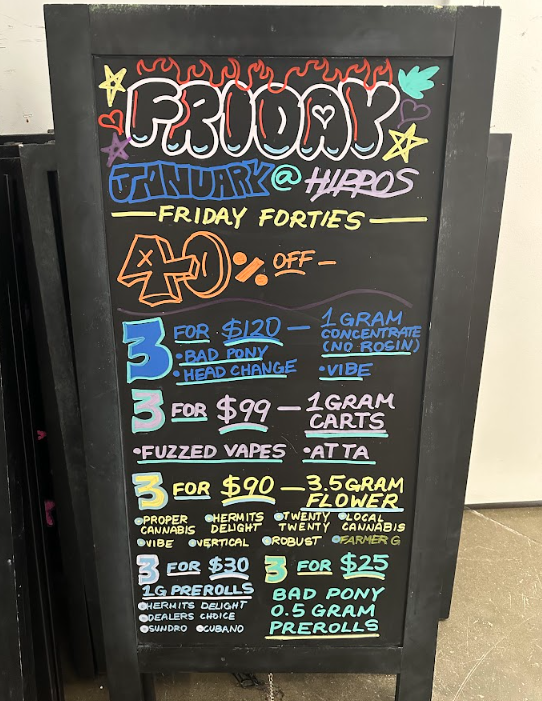 FRIDAY
JANUARY @ HIPPOS
FRIDAY FORTIES
40% OFF -
3 FOR $120 - 1 GRAM
CONCENTRATE
(NO ROSIN)
• BAD PONY
• HEAD CHANGE • VIBE
3 FOR $99 - 1 GRAM
CARTS
• FUZZED VAPES • ATTA
3 FOR $90 - 3.5 GRAM
FLOWER
• PROPER CANNABIS • HERMITS DELIGHT • TWENTY TWENTY • LOCAL CANNABIS
• VIBE • VERTICAL • ROBUST • FARMER G
3 FOR $30
1G PREROLLS
• HERMITS DELIGHT
• DEALERS CHOICE
• SUNDRO • CUBANO
3 FOR $25
BAD PONY
0.5 GRAM
PREROLLS